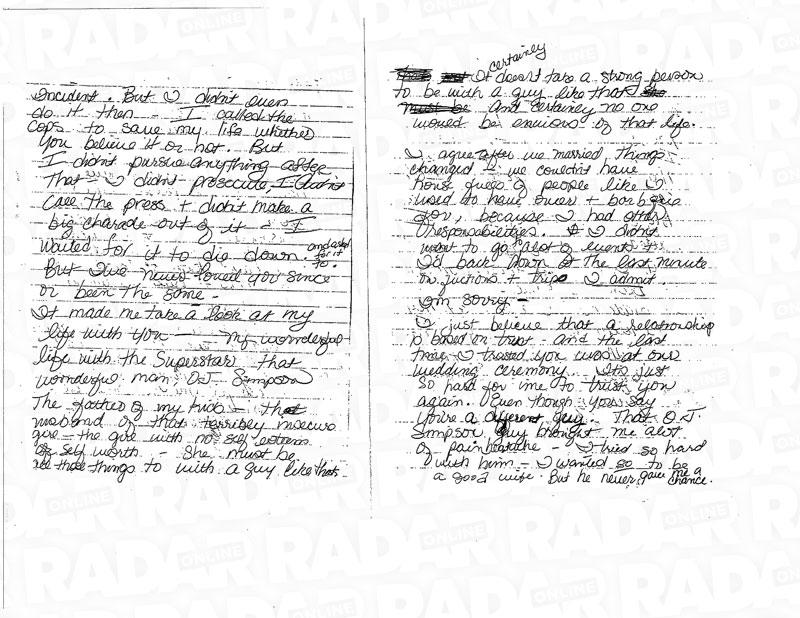 incident. But I didn't even
do it then - I called the
cops to save my life whether
you believe it or not. But
I didn't pursue anything after
that - I didn't prosecute, I didn't
call the press + didn't make a
big charade out of it - I
waited for it to die down. and asked for it to.
But I've never loved you since
or been the same -
It made me take a look at my
life with you — my wonderful
life with the Superstar that
wonderful man, O.J. Simpson
The father of my kids - that
husband of that terribly insecure
girl - the girl with no self esteem
of self worth - She must be
all those things to with a guy like that.
certainly
It doesn't take a strong person
to be with a guy like that
And certainly no one
would be envious of that life.
I agree after we married things
changed - we couldn't have
hours of people like I
used to have over + barbque
for, because I had other
responsibilities. I didn't
want to go to alot of events +
I'd back down at the last minute
on fuctions + trips I admit.
I'm sorry -
I just believe that a relationship
is based on trust - and the last
time I trusted you was at our
wedding ceremony. It's just
so hard for me to trust you
again. Even though you say
you're a different guy. That O.J.
Simpson guy brought me alot
of pain heartache - I tried so hard
with him - I wanted so to be
a good wife. But he never gave me a chance.
RADAR
ONLINE